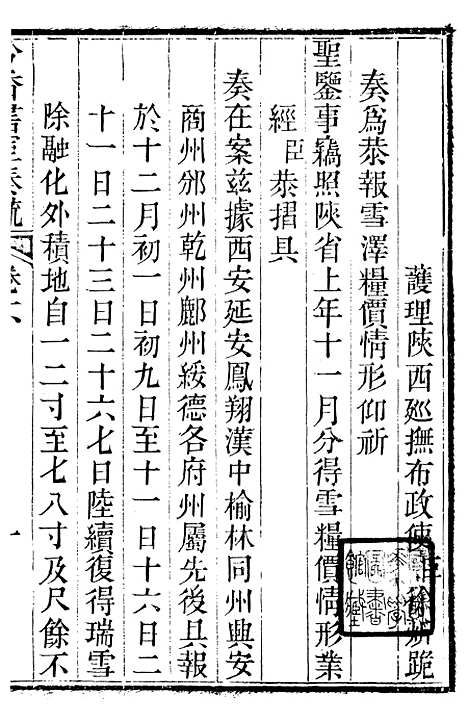 護理陝西廵撫布政使臣徐炘跪
奏爲恭報雪澤糧價情形仰祈
聖鑒事竊照陝省上年十一月分得雪糧價情形業
經臣恭摺具
奏在案茲據西安延安鳳翔漢中榆林同州興安
商州邠州乾州鄜州綏德各府州屬先後具報
於十二月初一日初九日至十一日十六日二
十一日二十三日二十六七日陸續復得瑞雪
除融化外積地自一二寸至七八寸及尺餘不
奏疏
卷六
一